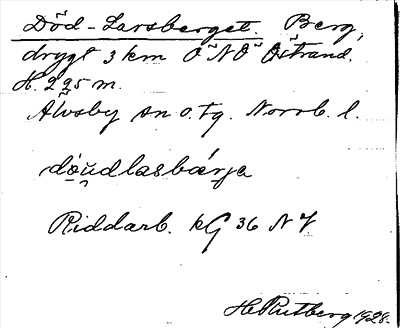 Död-Larsberget. Berg,
drygt 3 km O˝NO˝ Östrand.
H. 225 m.
Älvsby sn o. tg. Norrb. l.
dóu̯dlasbár̥ja
Riddarb. kG 36 N V.
H Rutberg 1928.